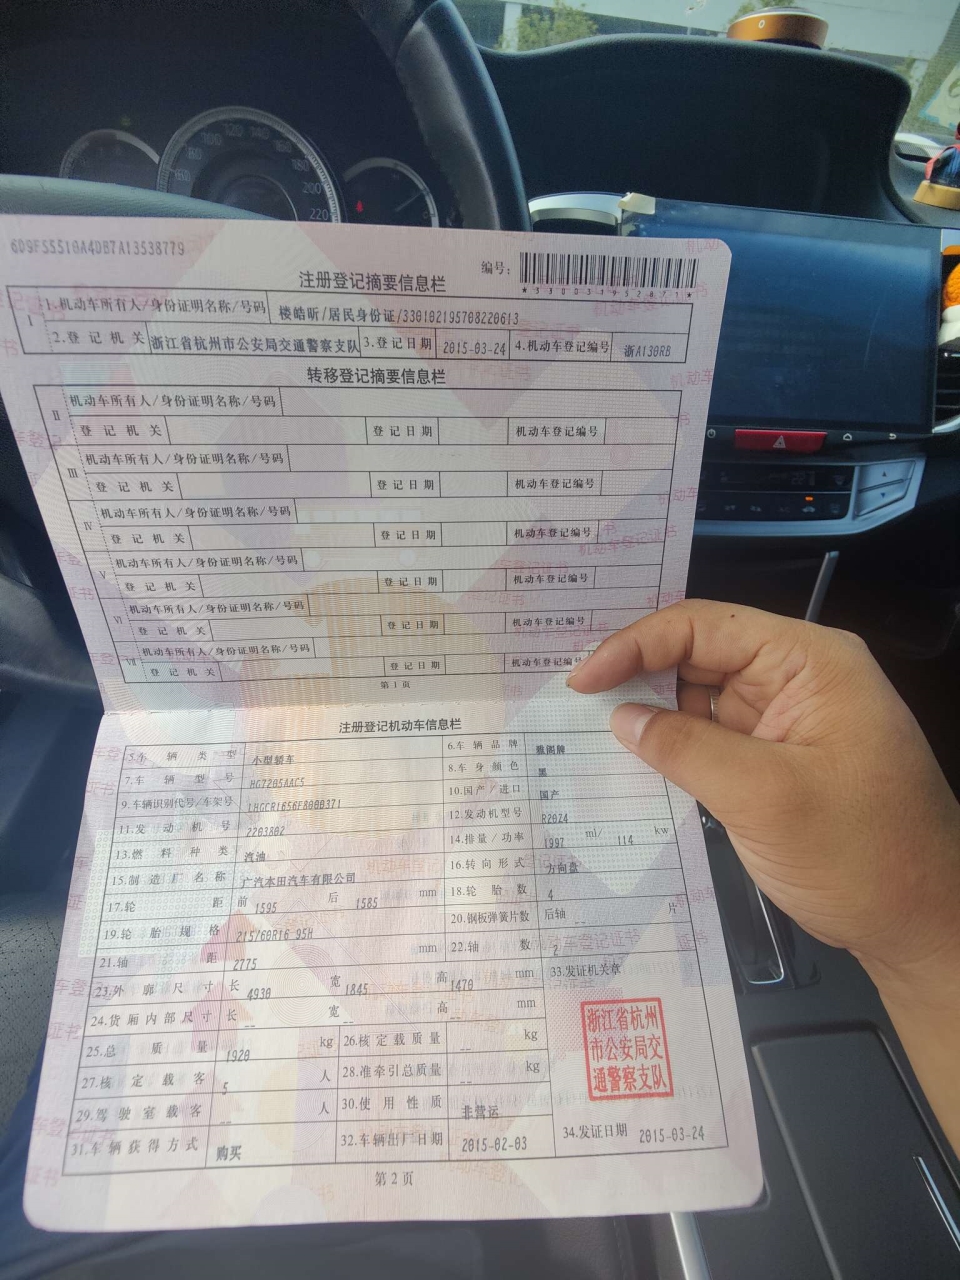 6D9FSS510A4DB7A13538779
编号：
*330031952071*
注册登记摘要信息栏
I
1.机动车所有人/身份证明名称/号码 楼皓昕/居民身份证/330102195708220613
2.登记机关 浙江省杭州市公安局交通警察支队 3.登记日期 2015-03-24 4.机动车登记编号 浙A130RB
转移登记摘要信息栏
II 机动车所有人/身份证明名称/号码
登记机关 登记日期 机动车登记编号
III 机动车所有人/身份证明名称/号码
登记机关 登记日期 机动车登记编号
IV 机动车所有人/身份证明名称/号码
登记机关 登记日期 机动车登记编号
V 机动车所有人/身份证明名称/号码
登记机关 登记日期 机动车登记编号
VI 机动车所有人/身份证明名称/号码
登记机关 登记日期 机动车登记编号
VII 机动车所有人/身份证明名称/号码
登记机关 登记日期 机动车登记编号
第1页
注册登记机动车信息栏
5.车辆类型 小型轿车 6.车辆品牌 雅阁牌
7.车辆型号 HG7205AAC5 8.车身颜色 黑
9.车辆识别代号/车架号 LHGCR1656F8000371 10.国产/进口 国产
11.发动机号 2203802 12.发动机型号 R20Z4
13.燃料种类 汽油 14.排量/功率 1997 ml/ 114 kw
15.制造厂名称 广汽本田汽车有限公司 16.转向形式 方向盘
17.轮距 前 1595 后 1585 mm 18.轮胎数 4
19.轮胎规格 215/60R16 95H 20.钢板弹簧片数 后轴 -- 片
21.轴距 2775 mm 22.轴数 2
23.外廓尺寸 长 4930 宽 1845 高 1470 mm 33.发证机关章
24.货厢内部尺寸 长 -- 宽 -- 高 -- mm
25.总质量 1920 kg 26.核定载质量 -- kg
27.核定载客 5 人 28.准牵引总质量 -- kg
29.驾驶室载客 -- 人 30.使用性质 非营运
31.车辆获得方式 购买 32.车辆出厂日期 2015-02-03 34.发证日期 2015-03-24
浙江省杭州
市公安局交
通警察支队
第2页